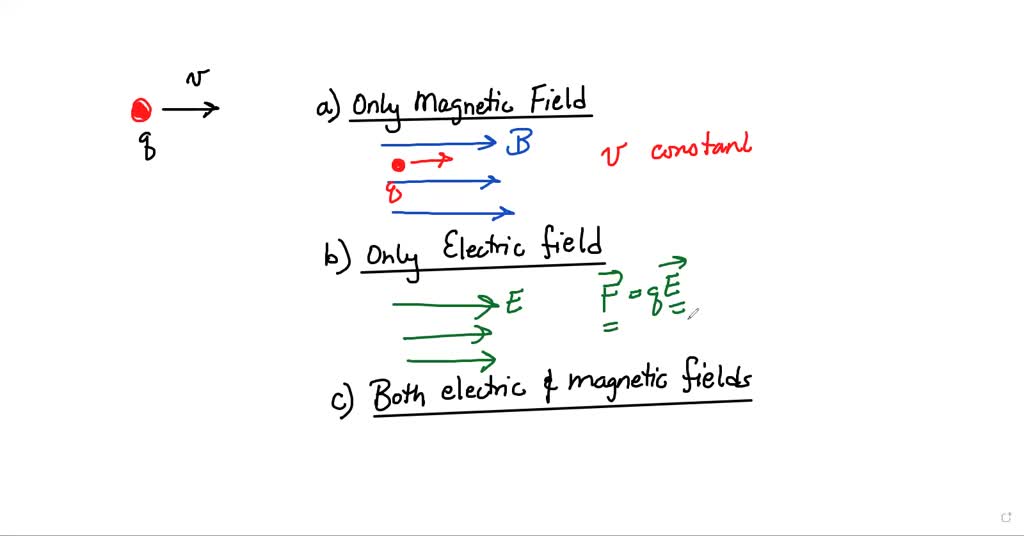 v
q
a) Only Magnetic Field
B
v constant
q
b) Only Electric field
E
F = qE
c) Both electric & magnetic fields